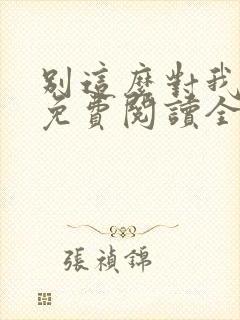 別這麼對我
免費閱讀全
張禎錦